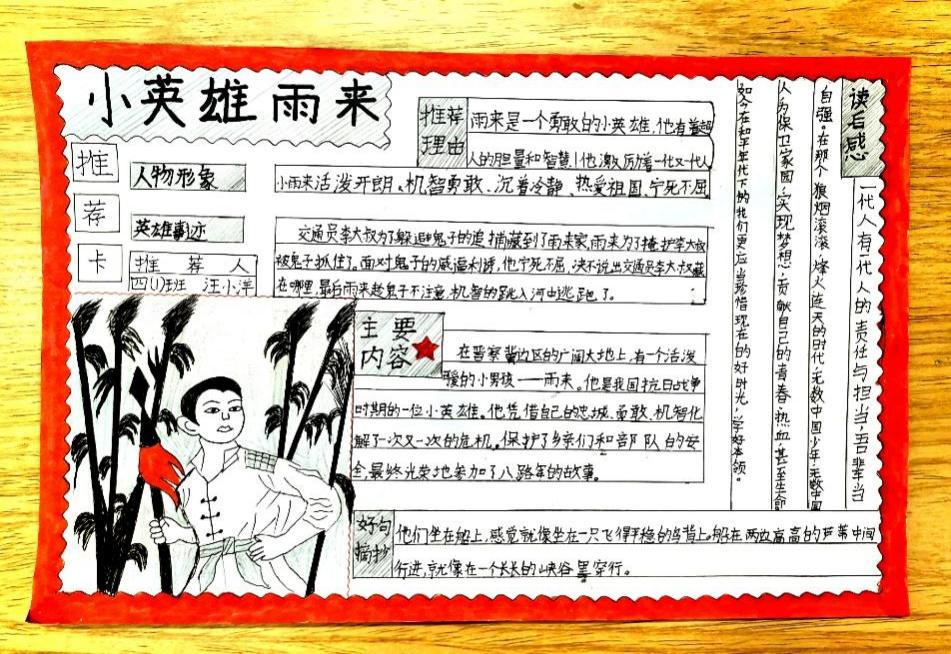 小英雄雨来
推
荐
卡
人物形象
英雄事迹
推荐人
四(1)班 汪小洋
推荐
理由
雨来是一个勇敢的小英雄,他有着超
人的胆量和智慧!他激励着一代又一代人
小雨来活泼开朗、机智勇敢、沉着冷静、热爱祖国、宁死不屈
交通员李大叔为了躲避鬼子的追捕藏到了雨来家,雨来为了掩护李大叔
被鬼子抓住了。面对鬼子的威逼利诱,他宁死不屈,决不说出交通员李大叔藏
在哪里,最后雨来趁鬼子不注意,机智的跳入河中逃跑了。
主要
内容
在晋察冀边区的广阔大地上,有一个活泼
可爱的小男孩——雨来。他是我国抗日战争
时期的一位小英雄。他凭借自己的忠诚、勇敢、机智化
解了一次又一次的危机。保护了乡亲们和部队的安
全,最终光荣地参加了八路军的故事。
好句
摘抄
他们坐在船上,感觉就像坐在一只飞得平稳的鸟背上。船在两边高高的芦苇中间
行进,就像在一个长长的峡谷里穿行。
读后感
一代人有一代人的责任与担当,吾辈当
自强。在那个狼烟滚滚,烽火连天的时代,无数中国少年,无数中国
人为保卫家园,实现梦想,贡献自己的青春、热血,甚至生命
如今在和平年代下的我们更应当珍惜现在的好时光,学好本领。